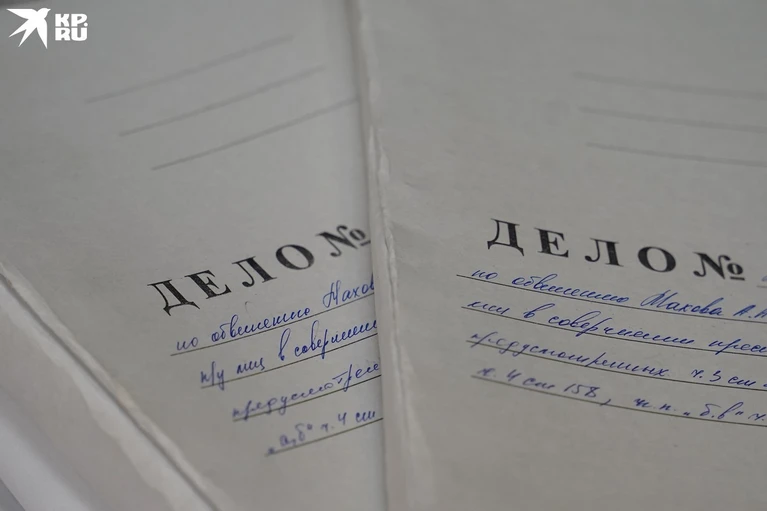 KP.
RU
ДЕЛО №
по обвинению Махов
гр. лиц в соверше
предусмотрен
"а,б" ч. 4 ст
ДЕЛО №
по обвинению Махова А.А
лиц в совершении прес
предусмотренных ч. 3 ст.
ч. 4 ст 158, ч. п. "б,в" ч.